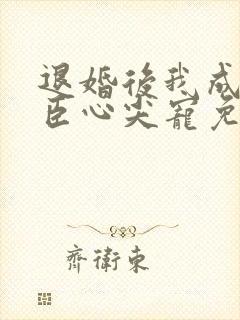 退婚後我成
臣心尖寵免
齊衛東